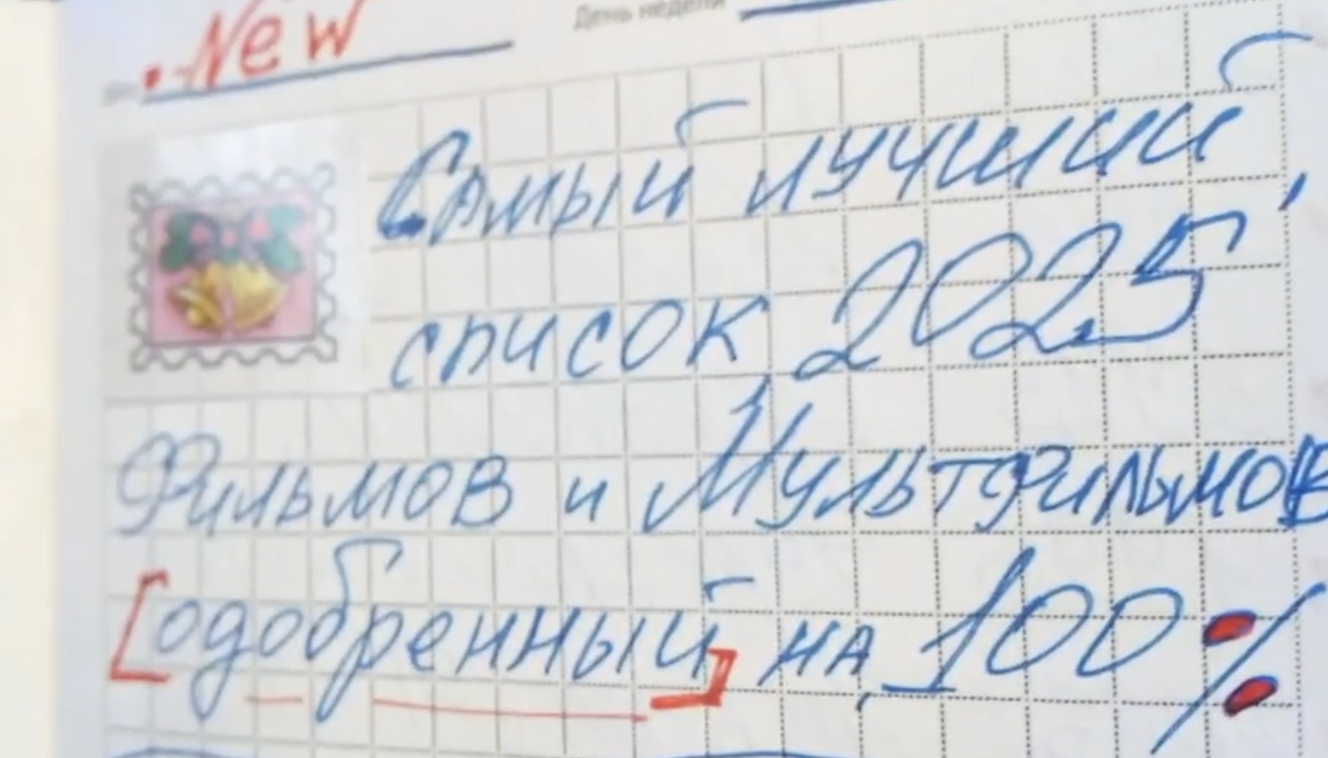 День недели
• -New
Самый лучший,
список 2025
Фильмов и Мультфильмов
[одобренный] на 100%